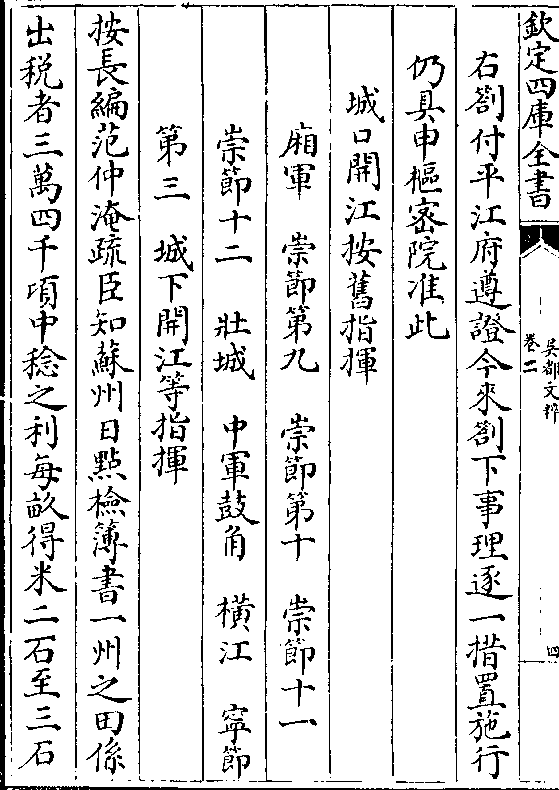 欽定四庫全書
吳都文粹
卷二
四
右劄付平江府遵證今來劄下事理逐一措置施行
仍具申樞密院准此
城口開江按舊指揮
廂軍　崇節第九　崇節第十　崇節十一
崇節十二　壯城　中軍鼓角　橫江　寧節
第三　城下開江等指揮
按長編范仲淹疏臣知蘇州日點檢簿書一州之田係
出税者三萬四千項中稔之利每畝得米二石至三石